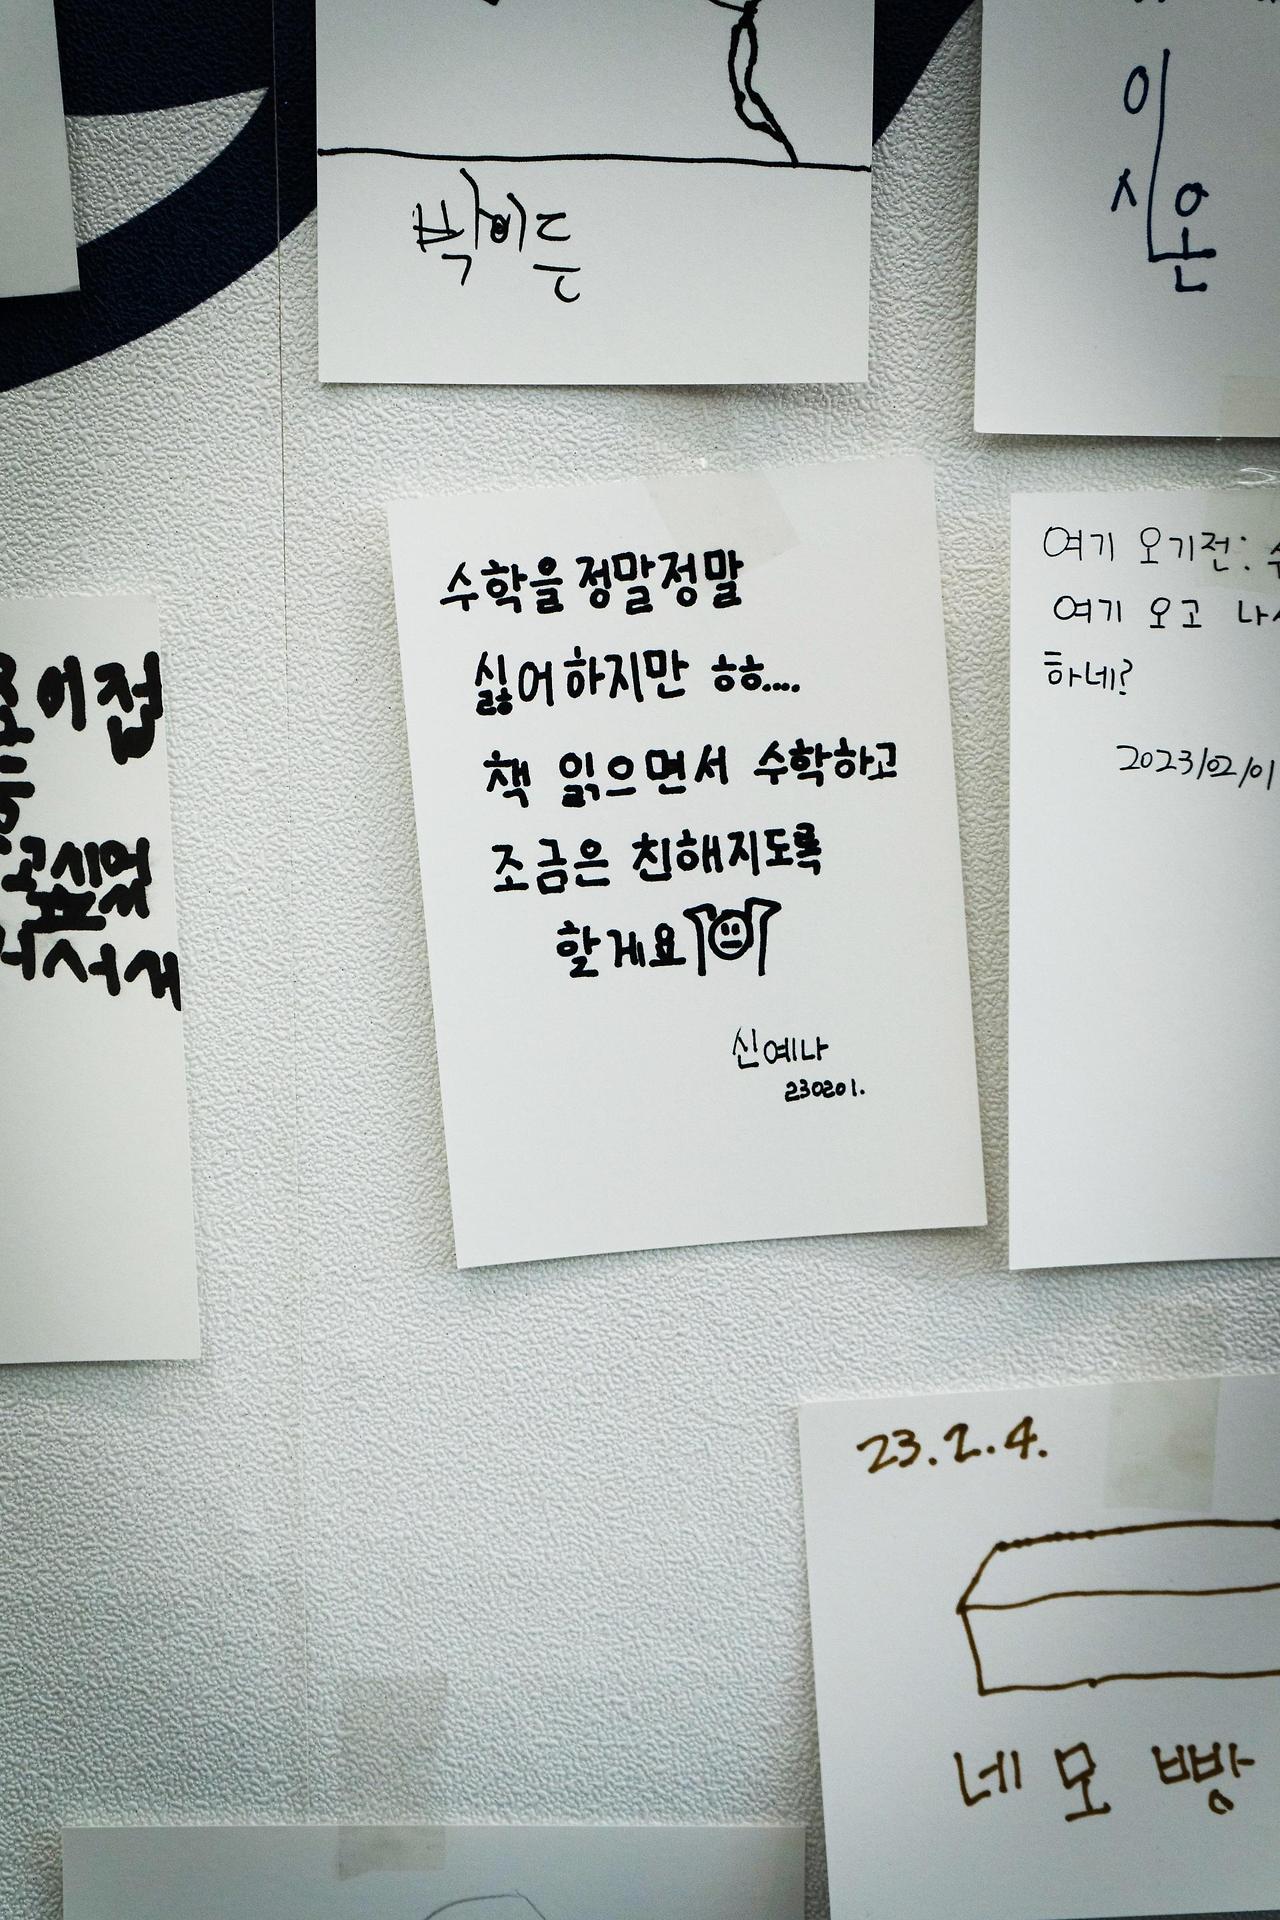 박이든
이
시온
수학을 정말정말
싫어하지만 ㅎㅎ....
책 읽으면서 수학하고
조금은 친해지도록
할게요
신예나
230201.
여기 오기전:
여기 오고
하네?
2023/02/01
23.2.4.
네모 빵